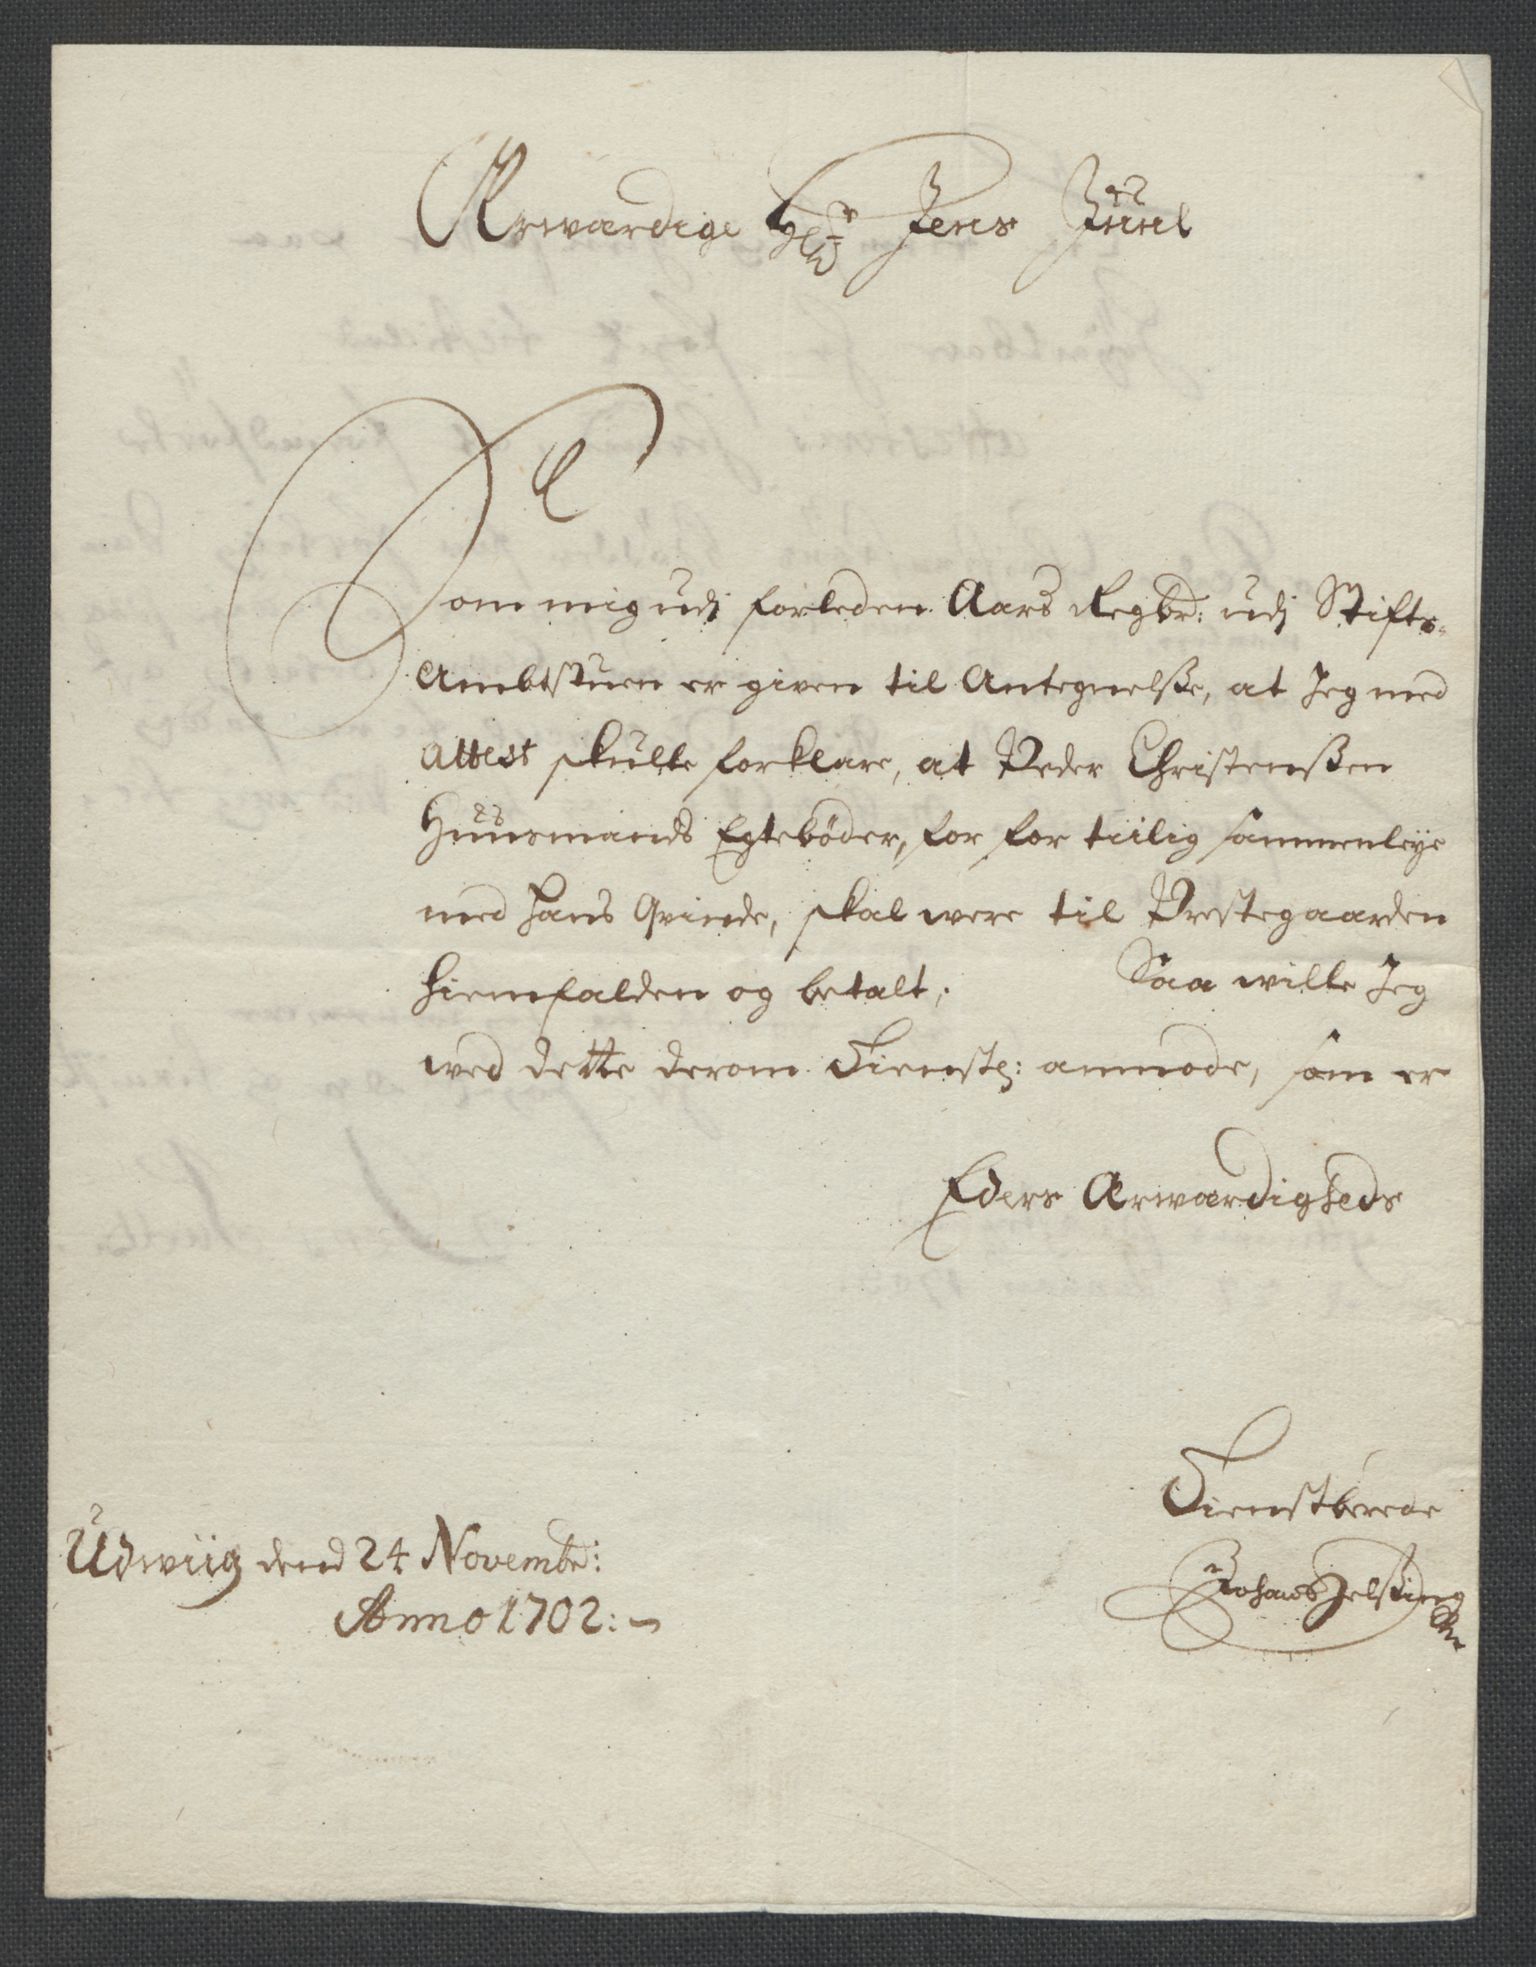 Ærwærdige Hr Jens Juul
Som mig udj forleden Aars Regbr: udj Stifts-
Ambtstuen er given til Antegnelsse, at Jeg med
Attest skulle forklare, at Peder Christenssen
Huusmands Egtebøder, for for tiilig sammenleye
med hans Qvinde, skal were til Prestegaarden
hiemfalden og betalt; Saa wille Jeg
wed dette derom Tienstl: anmode, som er
Eders Ærwærdigheds
Tienstberede
Udwiig dend 24 Novembr:
Anno 1702: